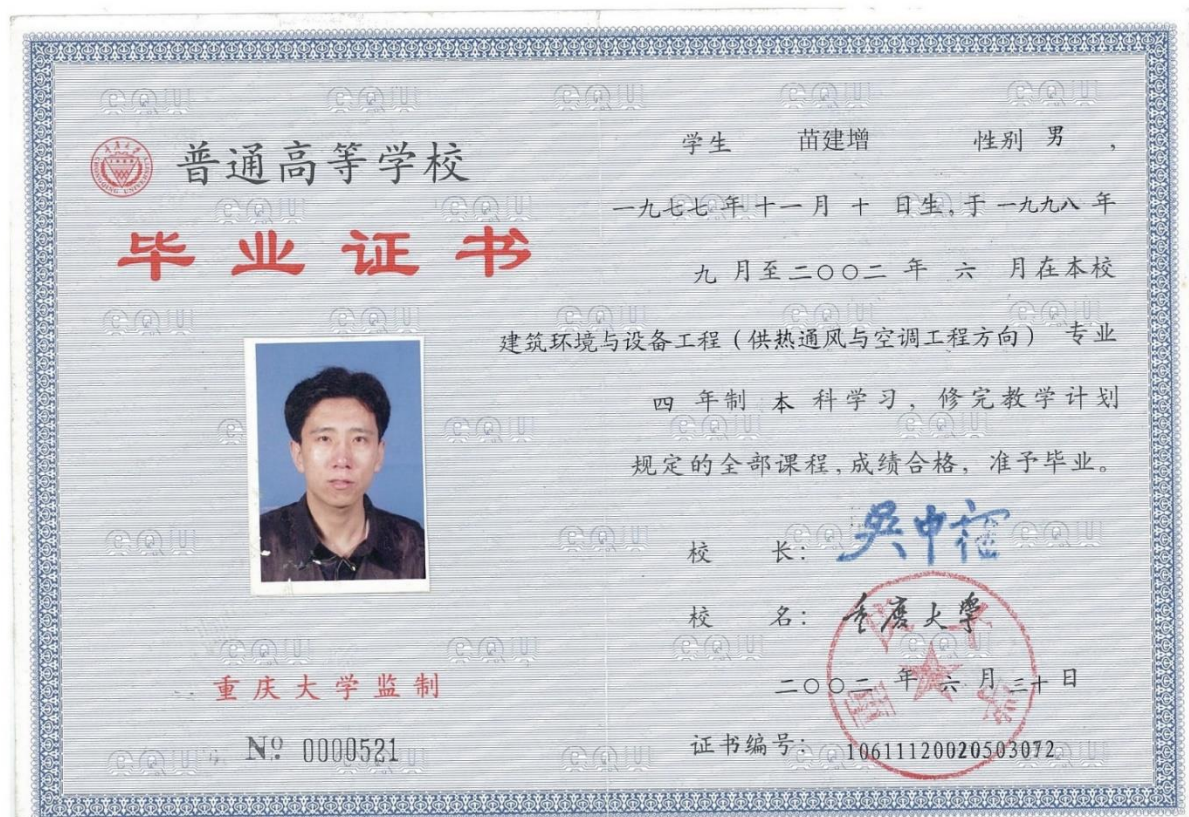 普通高等学校
毕业证书
重庆大学监制
№ 0000521
学生 苗建增 性别 男 ,
一九七七年十一月 十 日生,于一九九八年
九 月至二〇〇二 年 六 月在本校
建筑环境与设备工程(供热通风与空调工程方向) 专业
四 年制 本 科学习, 修完教学计划
规定的全部课程,成绩合格, 准予毕业。
校 长: 吴中福
校 名: 重庆大学
二〇〇二 年 六 月三十日
证书编号: 10611120020503072
CQU